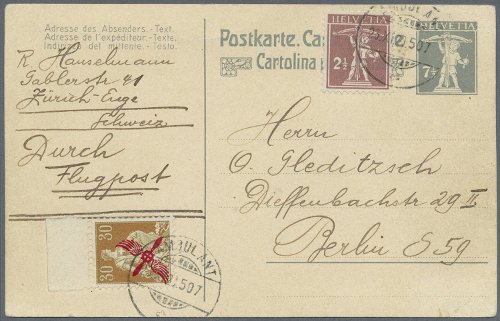 Adresse des Absenders. - Text.
Adresse de l'expéditeur. - Texte.
Indirizzo del mittente. - Testo.
R. Hanselmann
Gablerstr. 41
Zürich-Enge
Schweiz
Durch
Flugpost
Postkarte. Ca
Cartolina
HELVETIA
2½
HELVETIA
7½
AMBULANT
Herrn
O. Gleditzsch
Dieffenbachstr. 29 II
Berlin S 59
30
30
AMBULANT